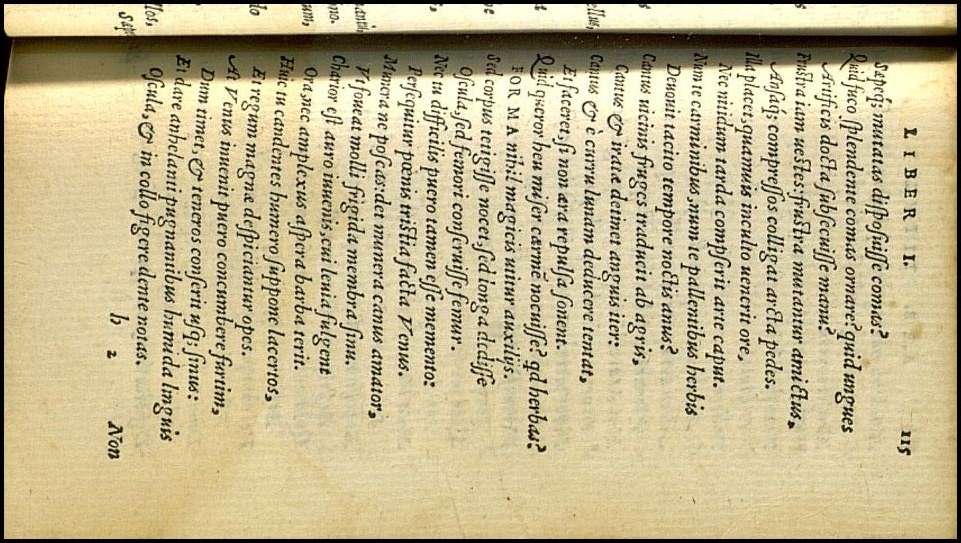 LIBER I. 115
Sæpeq́; mutatas diſpoſuiſſe comas?
Quid fuco ſplendente comas ornare? quid ungues
Artificis docta ſubſecuiſſe manu?
Fruſtra iam ueſtes, fruſtra mutantur amictus,
Anſaq́; compreſſos colligat arcta pedes.
Illa placet, quamuis inculto uenerit ore,
Nec nitidum tarda compſerit arte caput.
Num te carminibus, num te pallentibus herbis
Deuouit tacito tempore noctis anus?
Cantus uicinis fruges traducit ab agris,
Cantus & iratæ detinet anguis iter:
Cantus & è curru lunam deducere tentat,
Et faceret, ſi non æra repulſa ſonent.
Quid queror heu miſer carmē nocuiſſe? qd herbas?
FORMA nihil magicis utitur auxilijs.
Sed corpus tetigiſſe nocet, ſed longa dediſſe
Oſcula, ſed femori conſeruiſſe femur.
Nec tu difficilis puero tamen eſſe memento:
Perſequitur pœnis triſtia facta Venus.
Munera ne poſcas: det munera canus amator,
Vt foueat molli frigida membra ſinu.
Charior eſt auro iuuenis, cui leuia fulgent
Ora, nec amplexus aſpera barba terit.
Huic tu candentes humero ſuppone lacertos,
Et regum magnæ deſpiciantur opes.
At Venus inuenit puero concumbere furtim,
Dum timet, & teneros conſerit uſq; ſinus:
Et dare anhelanti pugnantibus humida linguis
Oſcula, & in collo figere dente notas.
h 2 Non